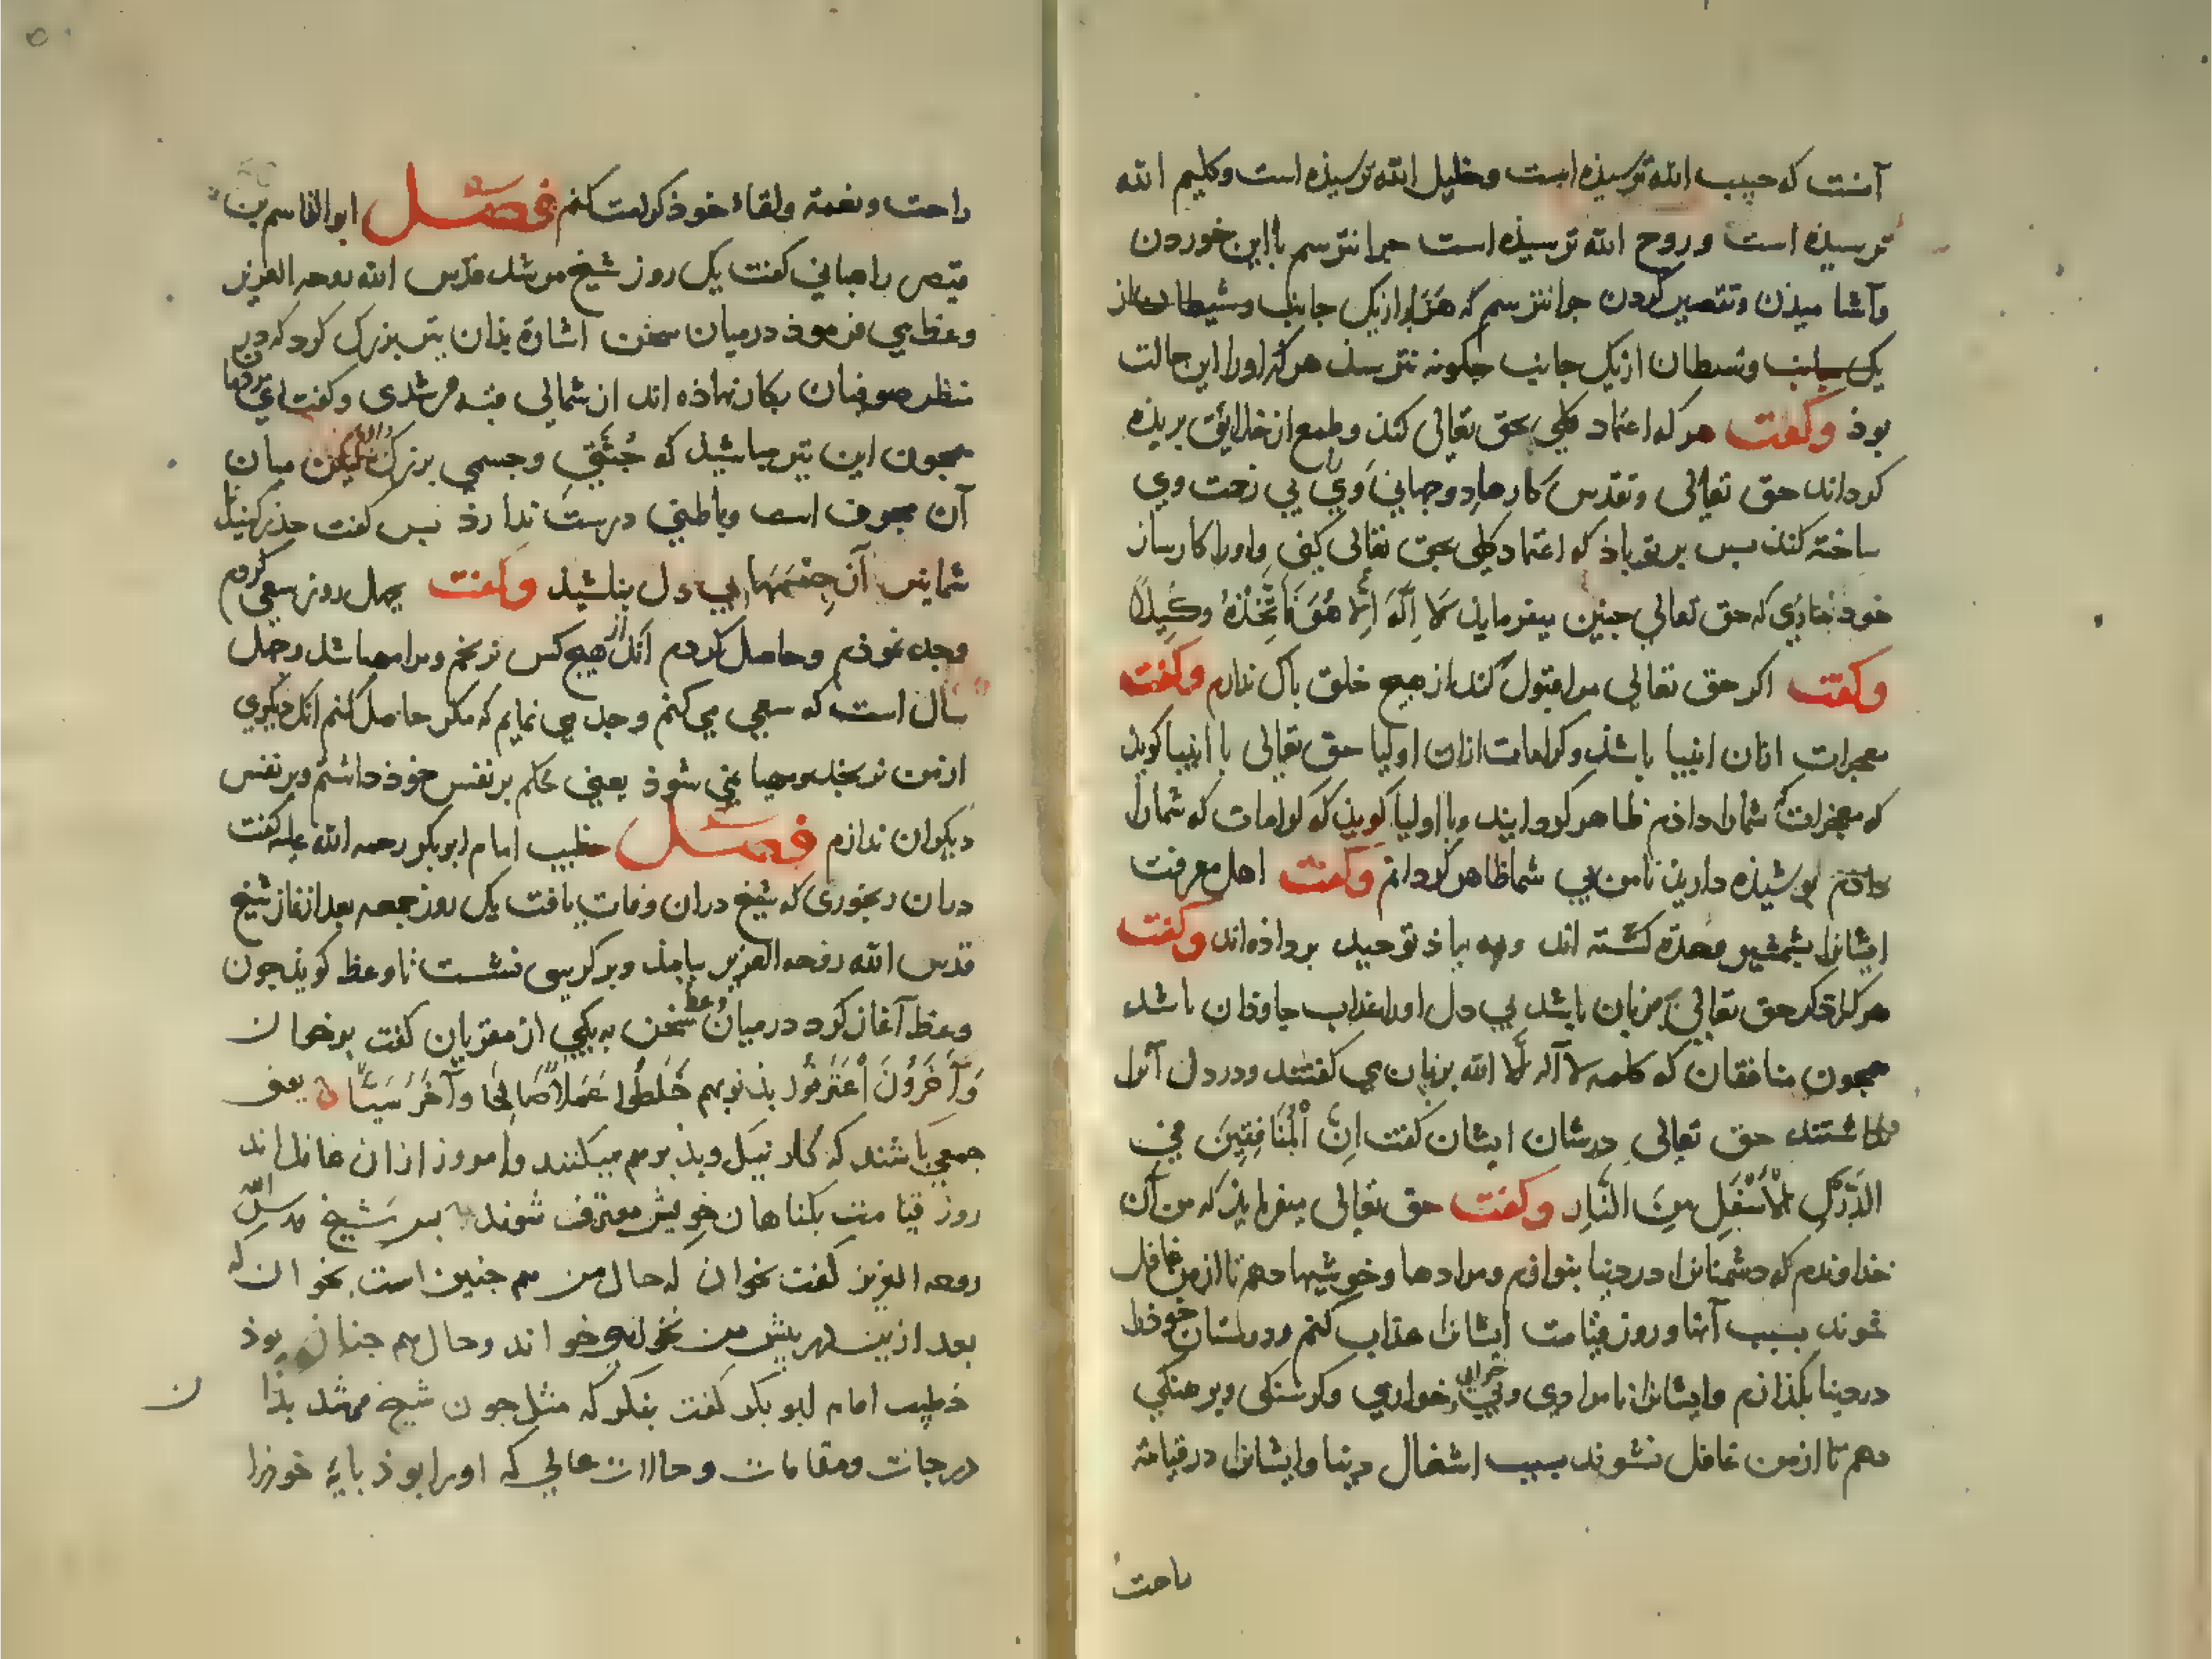 آنست که حبیب الله ترسیذه است وخلیل الله ترسیذه است وکلیم الله
ترسیذه است وروح الله ترسیذه است جرا نترسم با این خوردن
وآشامیذن وتقصیر کردن جرا نترسم که هزار از یک جانب وشیطان از
یک جانب وشیطان از یک جانب جکونه نترسذ هر که اورا این حالت
بوذ وکفت هر که اعتماد کلی بحق تعالی کنذ وطمع از خلایق بریذه
کرداند حق تعالی وتقدس کارهاء دوجهانی وی بی زحمت وی
ساخته کنذ بس بر تو باذ که اعتماد کلی بحق تعالی کنی واورا کارساز
خود دانی که حق تعالی جنین میفرماید لا اله الا هو فاتخذه وکیلا
وکفت اکر حق تعالی مرا قبول کند از هیچ خلق باک ندارم وکفت
معجزات ازان انبیا باشذ وکرامات ازان اولیا حق تعالی با انبیا کوید
که معجزات که شمارا داذم ظاهر کردانید وبا اولیا کویذ که کرامات که شمارا
داذم بوشیذه دارید تا من بی شما ظاهر کردانم وکفت اهل معرفت
ایشانرا بشمشیر کشته اند وبه یاذ توحید برداذه اند وکفت
هر کرا ذکر حق تعالی بر زبان باشد بی دل اورا عذاب جاوذان باشد
همجون منافقان که کلمه لا اله الا الله بزبان می کفتند ودر دل آنرا
نداشتند حق تعالی در شان ایشان کفت ان المنافقین فی
الدرک الاسفل من النار وکفت حق تعالی میفرمایذ که من آن
خذاوندم که دشمنانرا در دنیا بنوازم ومرادها وخوشیها دهم تا از من غافل
شوند بسبب آنها وروز قیامت ایشانرا عذاب کنم ودوستان خوذرا
در دنیا بکذازم وایشانرا نامرادی وخواری وکرسنکی وبرهنکی
دهم تا از من غافل نشوند بسبب اشغال دنیا وایشانرا در قیامة
راحت
راحت ونعمة ولقاء خوذ کرامت کنم فصل ابوالقاسم بن
قیصر راجبانی کفت یک روز شیخ مرشد قدس الله روحه العزیز
وعظ می فرموذ در میان سخن اشارة بذان تیر بزرک کرد که در
منظر صوفیان بکار نهاذه اند ازشمالی مرشدی وکفت ای مردمان
همجون این تیر مباشید که جثتی وجسمی بزرک دارد لیکن میان
آن مجوف است وباطنی درست ندارذ بس کفت حذر کنید
شما نیز آن جسمها بی دل نباشیذ وکفت جهل روز سعی کردم
وجد نموذم وحاصل کردم آنک از هیچ کس نرنجم ومرا مهیا شد وجهل
سال است که سعی می کنم وجد می نمایم که مکر حاصل کنم آنک دیکری
از من نرنجد ومهیا نمی شود یعنی حکم بر نفس خوذ داشتم وبر نفس
دیکران ندارم فصل خطیب امام ابوبکر رحمه الله علیه کفت
دران رنجوری که شیخ دران وفات یافت یک روز جمعه بعد از نماز شیخ
قدس الله روحه العزیز بیامذ وبر کرسی نشست تا وعظ کویذ جون
وعظ آغاز کرد در میان وعظ سخن به یکی از مقریان کفت برخوان
وآخرون اعترفوا بذنوبهم خلطوا عملا صالحا وآخر سیئا یعنی
جمعی باشند که کار نیک وبذ برهم میکنند وامروز ازان غافل اند
روز قیامت بکناهان خویش معترف شوند بس شیخ قدس الله
روحه العزیز کفت بخوان که حال من هم جنین است بخوان که
بعد ازین بیش من نخوانی وخواند وحال هم جنان بوذ
خطیب امام ابوبکر کفت بنکر که مثل جون شیخ مرشد بذا
درجات ومقامات وحالات عالی که اورا بوذ بایۀ خوذرا